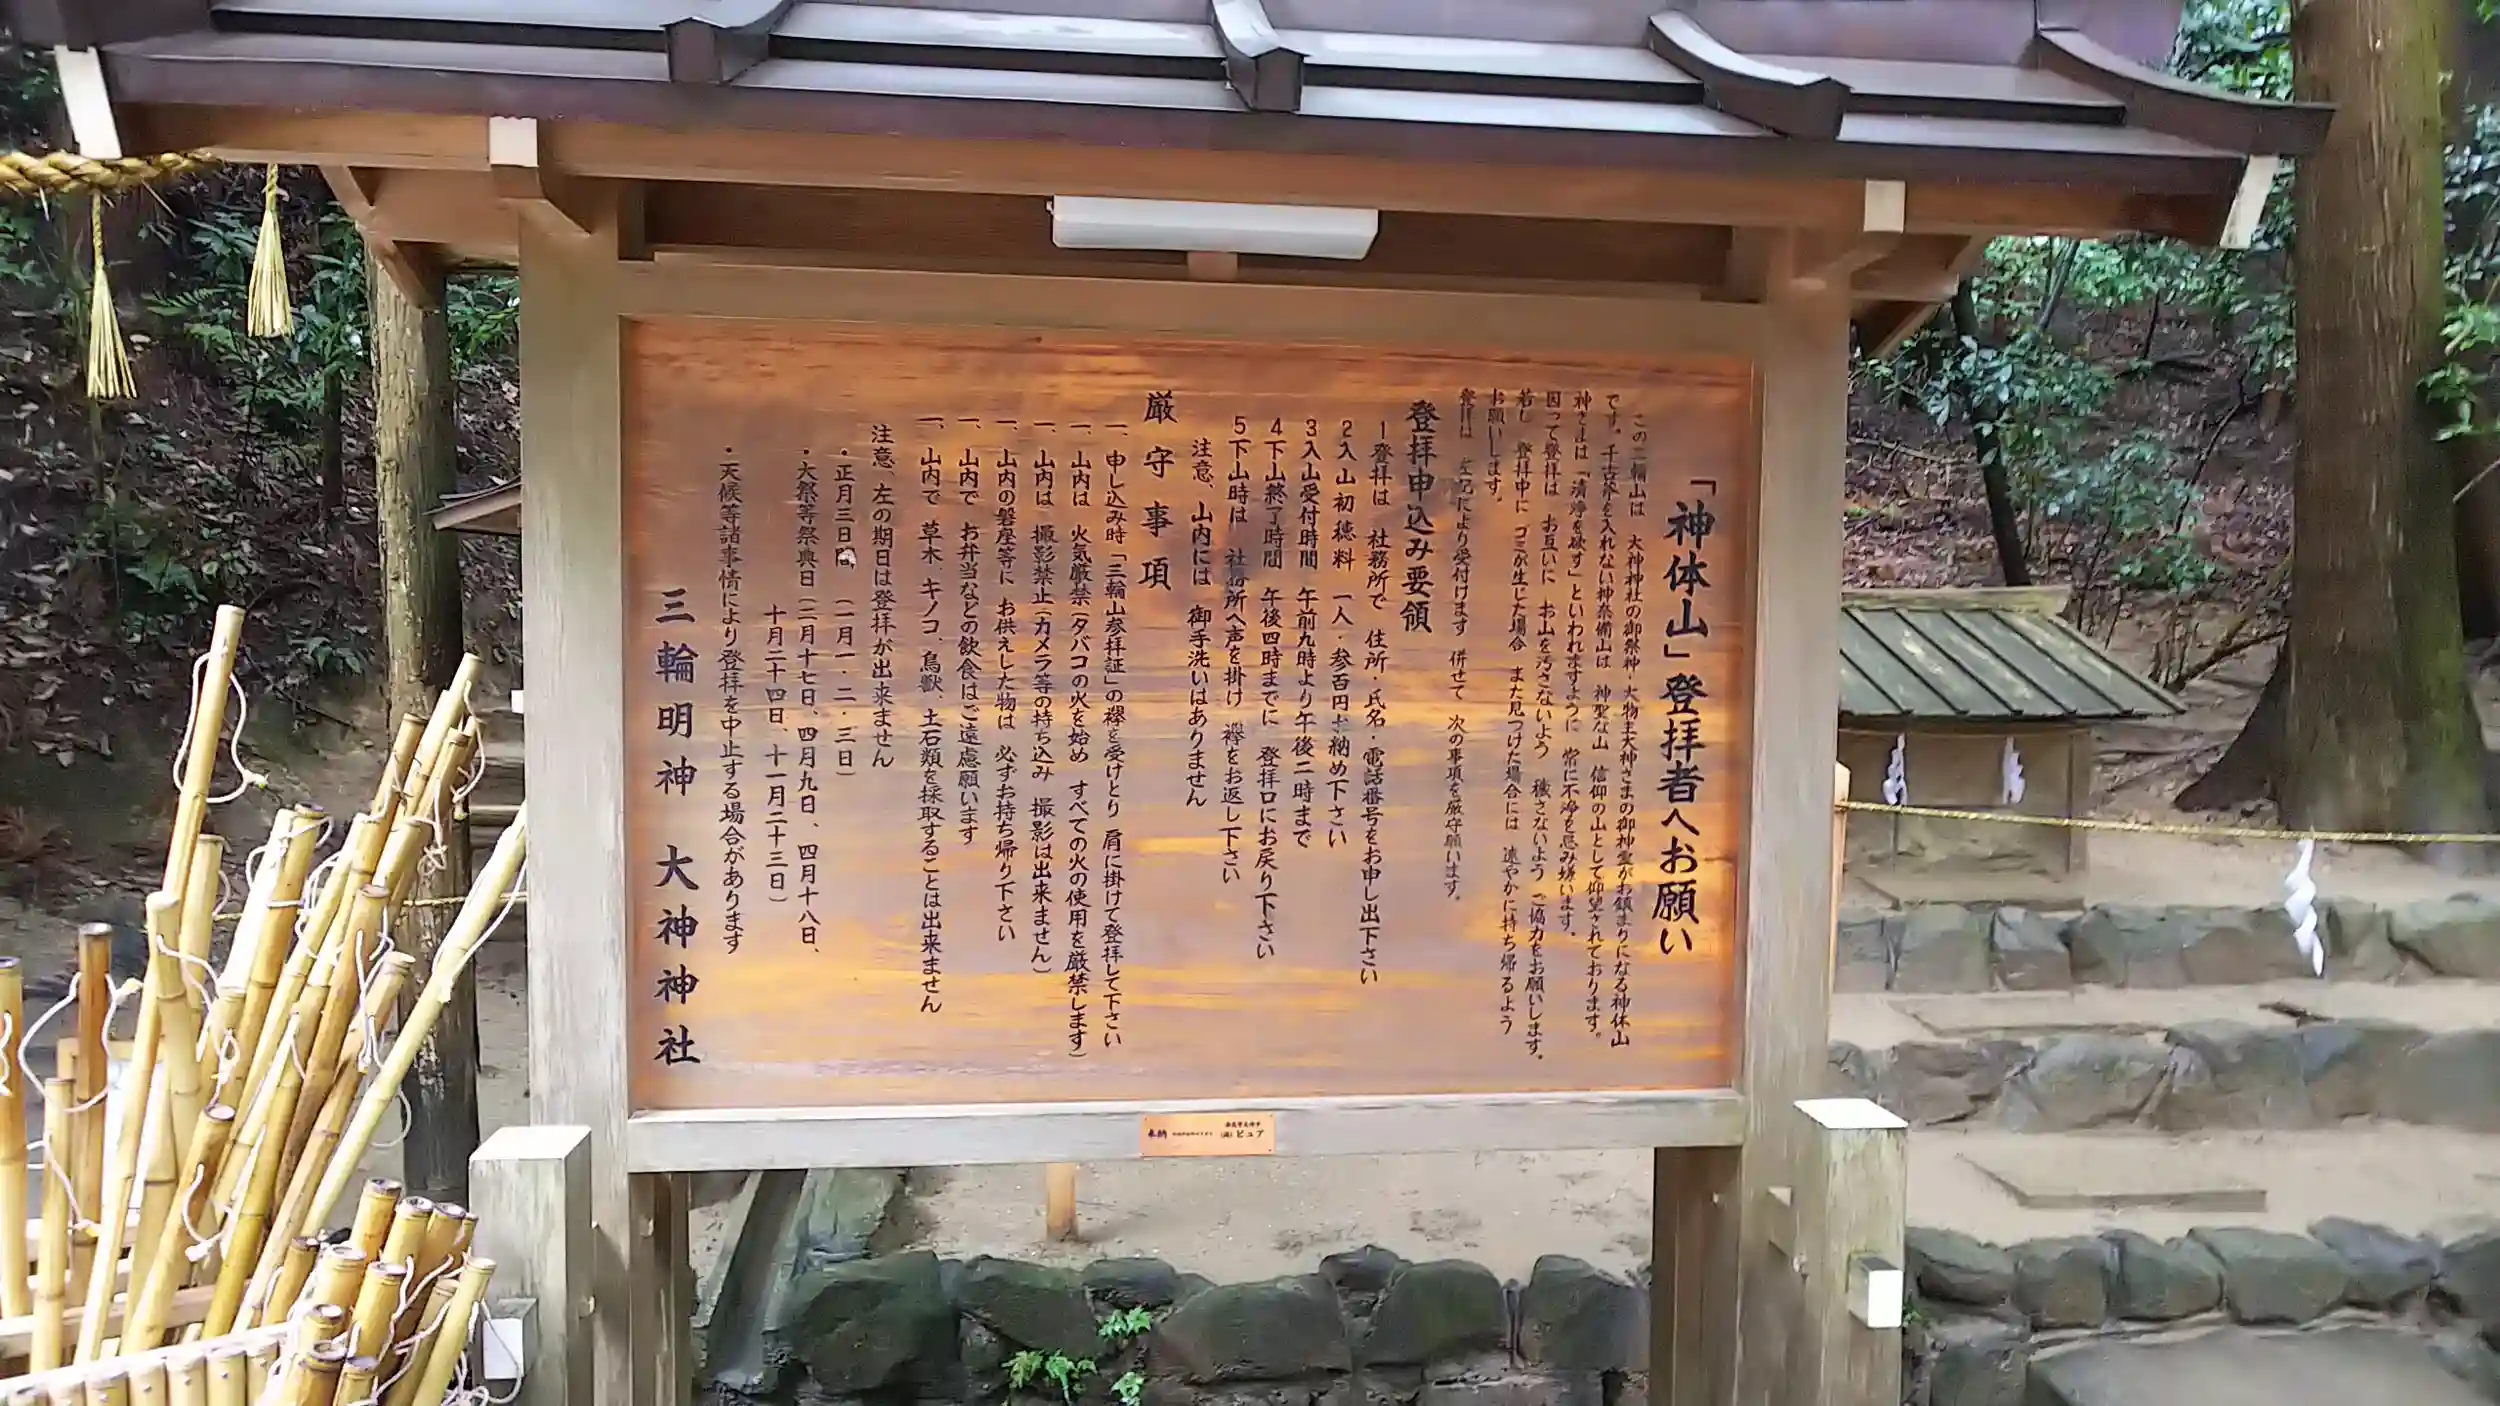 「神体山」登拝者へお願い
この三輪山は 大神神社の御祭神・大物主大神さまの御神霊がお鎮まりになる神体山
です。千古斧を入れない神奈備山は 神聖な山 信仰の山として仰望されております。
神さまは「清浄を欲す」といわれますように 常に不浄を忌み嫌います。
因って登拝は お互いに お山を汚さないよう 穢さないよう ご協力をお願いします。
若し 登拝中に ゴミが生じた場合 また見つけた場合には 速やかに持ち帰るよう
お願いします。
登拝は 左記により受付けます 併せて 次の事項を厳守願います。
登拝申込み要領
1登拝は 社務所で 住所・氏名・電話番号をお申し出下さい
2入山初穂料 一人・参百円お納め下さい
3入山受付時間 午前九時より午後二時まで
4下山終了時間 午後四時までに 登拝口にお戻り下さい
5下山時は 社務所へ声を掛け 襷をお返し下さい
注意、山内には 御手洗いはありません
厳守事項
一、申し込み時「三輪山参拝証」の襷を受けとり 肩に掛けて登拝して下さい
一、山内は 火気厳禁(タバコの火を始め すべての火の使用を厳禁します)
一、山内は 撮影禁止(カメラ等の持ち込み 撮影は出来ません)
一、山内の磐座等に お供えした物は 必ずお持ち帰り下さい
一、山内で お弁当などの飲食はご遠慮願います
一、山内で 草木、キノコ、鳥獣、土石類を採取することは出来ません
注意、左の期日は登拝が出来ません
・正月三日間 (一月一・二・三日)
・大祭等祭典日(二月十七日、四月九日、四月十八日、
十月二十四日、十一月二十三日)
・天候等諸事情により登拝を中止する場合があります
三輪明神 大神神社
奉納
ピュア